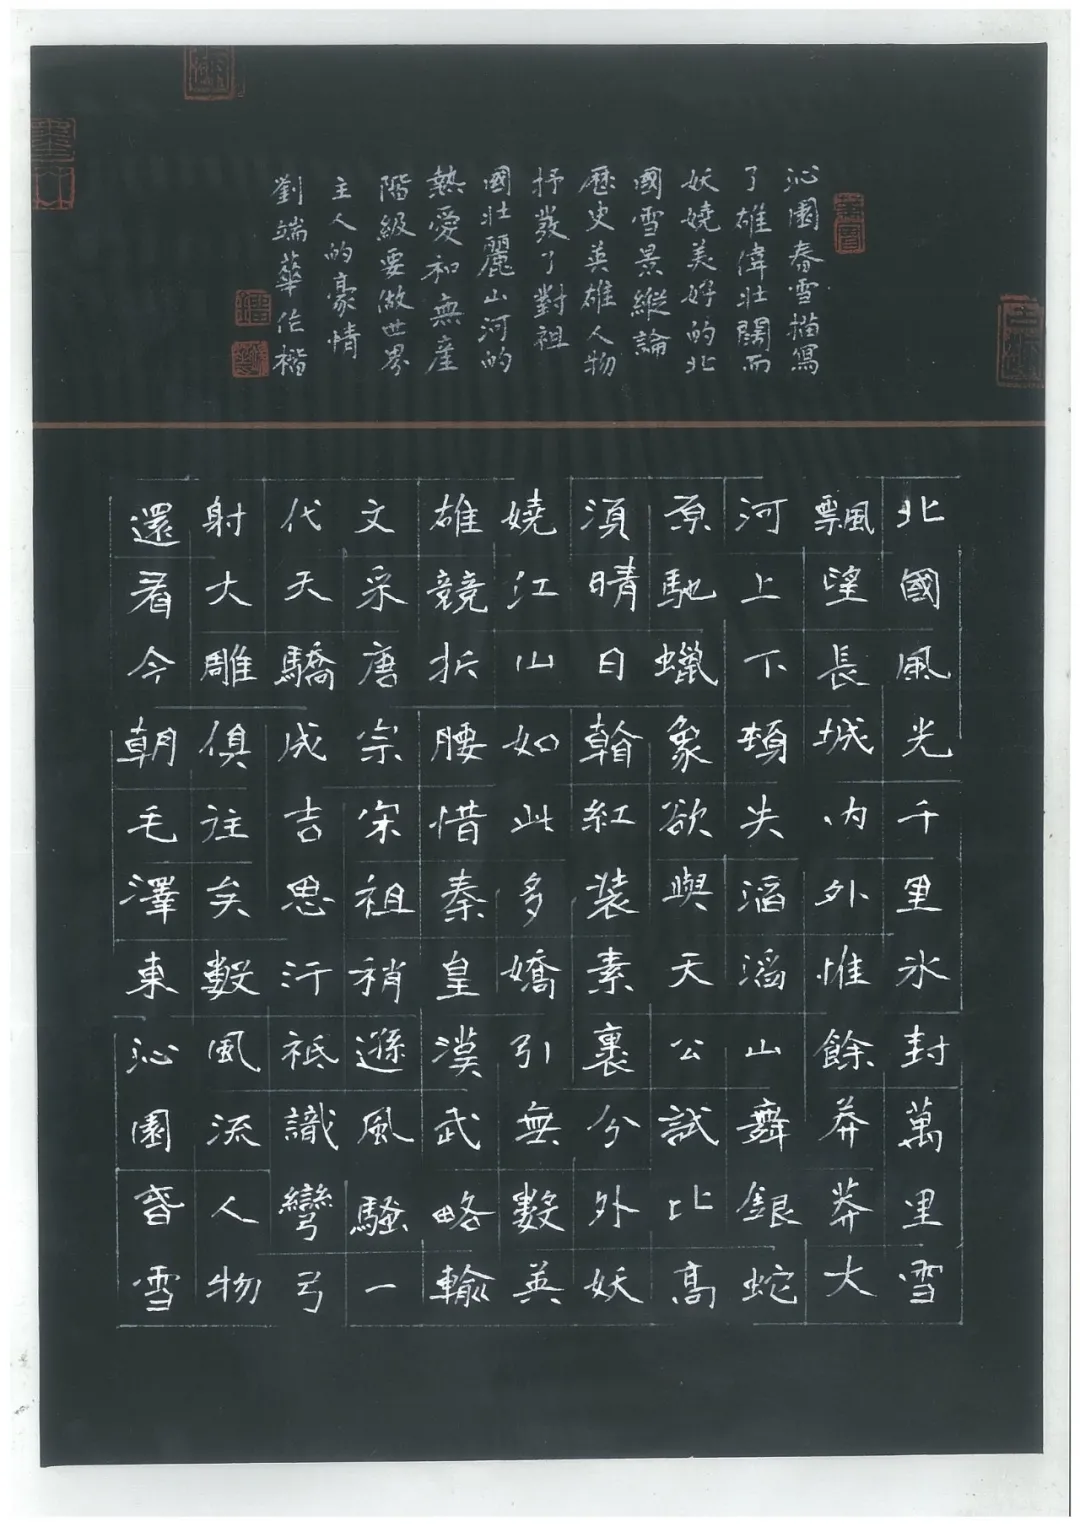 沁園春雪描寫
了雄偉壯闊而
妖嬈美好的北
國雪景縱論
歷史英雄人物
抒發了對祖
國壯麗山河的
熱愛和無產
階級要做世界
主人的豪情
劉端華作楷
北國風光千里冰封萬里雪
飄望長城內外惟餘莽莽大
河上下頓失滔滔山舞銀蛇
原馳蠟象欲與天公試比高
須晴日翰紅裝素裹分外妖
嬈江山如此多嬌引無數英
雄競折腰惜秦皇漢武略輸
文采唐宗宋祖稍遜風騷一
代天驕成吉思汗祗識彎弓
射大雕俱往矣數風流人物
還看今朝毛澤東沁園春雪